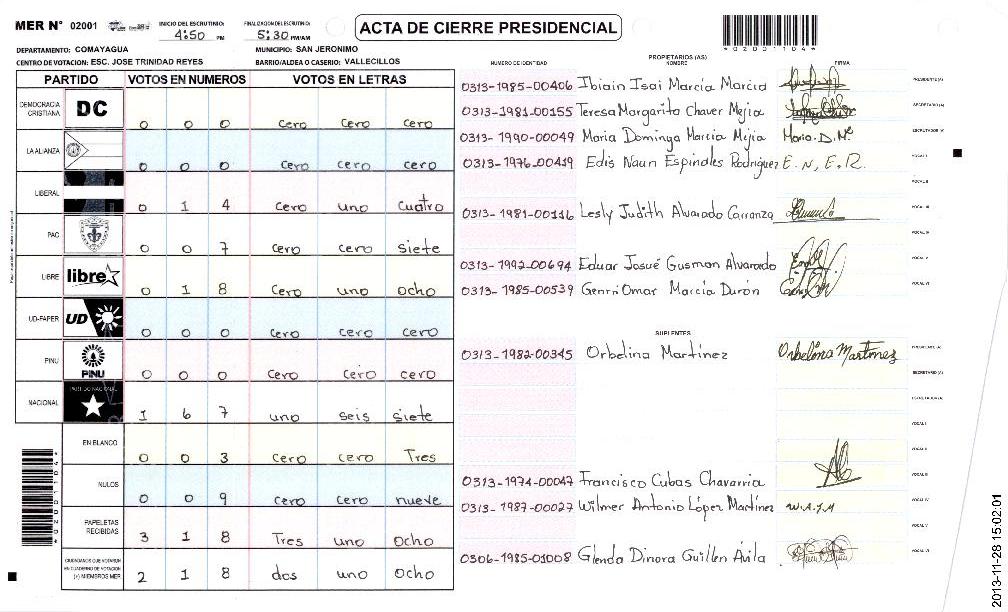 MER N° 02001
INICIO DEL ESCRUTINIO: 4:50 PM
FINALIZACION DEL ESCRUTINIO: 5:30 PM/AM
ACTA DE CIERRE PRESIDENCIAL
*02001104*
DEPARTAMENTO: COMAYAGUA
MUNICIPIO: SAN JERONIMO
CENTRO DE VOTACION: ESC. JOSE TRINIDAD REYES
BARRIO/ALDEA O CASERIO: VALLECILLOS
PARTIDO VOTOS EN NUMEROS VOTOS EN LETRAS
DEMOCRACIA CRISTIANA DC 0 0 0 cero cero cero
LA ALIANZA 0 0 0 cero cero cero
LIBERAL 0 1 4 cero uno cuatro
PAC 0 0 7 cero cero siete
LIBRE libre 0 1 8 cero uno ocho
UD-FAPER UD 0 0 0 cero cero cero
PINU PINU 0 0 0 cero cero cero
NACIONAL PARTIDO NACIONAL 1 6 7 uno seis siete
EN BLANCO 0 0 3 cero cero Tres
NULOS 0 0 9 cero cero nueve
PAPELETAS RECIBIDAS 3 1 8 Tres uno ocho
CIUDADANOS QUE VOTARON EN CUADERNO DE VOTACION (+) MIEMBROS MER 2 1 8 dos uno ocho
PROPIETARIOS (AS)
NUMERO DE IDENTIDAD NOMBRE FIRMA
0313-1985-00406 Ibiain Isai Marcía Marcia PRESIDENTE (A)
0313-1981-00155 Teresa Margarita Chaver Mejia SECRETARIO (A)
0313-1990-00049 Maria Dominga Marcia Mijia Maria. D. M. ESCRUTADOR (A)
0313-1976-00419 Edis Naun Espinales Rodriguez E. N, E. R. VOCAL I
VOCAL II
0313-1981-00116 Lesly Judith Alvarado Carranza VOCAL III
VOCAL IV
0313-1992-00694 Eduar Josué Gusman Alvarado VOCAL V
0313-1985-00539 Genri Omar Marcia Durón VOCAL VI
SUPLENTES
0313-1982-00345 Orbelina Martínez Orbelina Martinez PRESIDENTE (A)
SECRETARIO (A)
ESCRUTADOR (A)
VOCAL I
VOCAL II
0313-1974-00047 Francisco Cubas Chavarria VOCAL III
0313-1987-00027 Wilmer Antonio López Martínez W.A.L.M VOCAL IV
VOCAL V
0306-1985-01008 Glenda Dinora Guillen Ávila VOCAL VI
*02001104*
2013-11-28 15:02:01